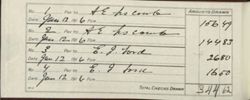 AMOUNTS DRAWN
No. 1 Pay to A E Lscomb
Date Jan 12 1916 For 15649
No. 2 Pay to A E Lscomb
Date Jan 12 1916 For 14483
No. 3 Pay to E. J. Ford
Date Jan 12 1916 For 2680
No. 4 Pay to E J Ford
Date Jan 12 1916 For 1650
TOTAL CHECKS DRAWN 34462